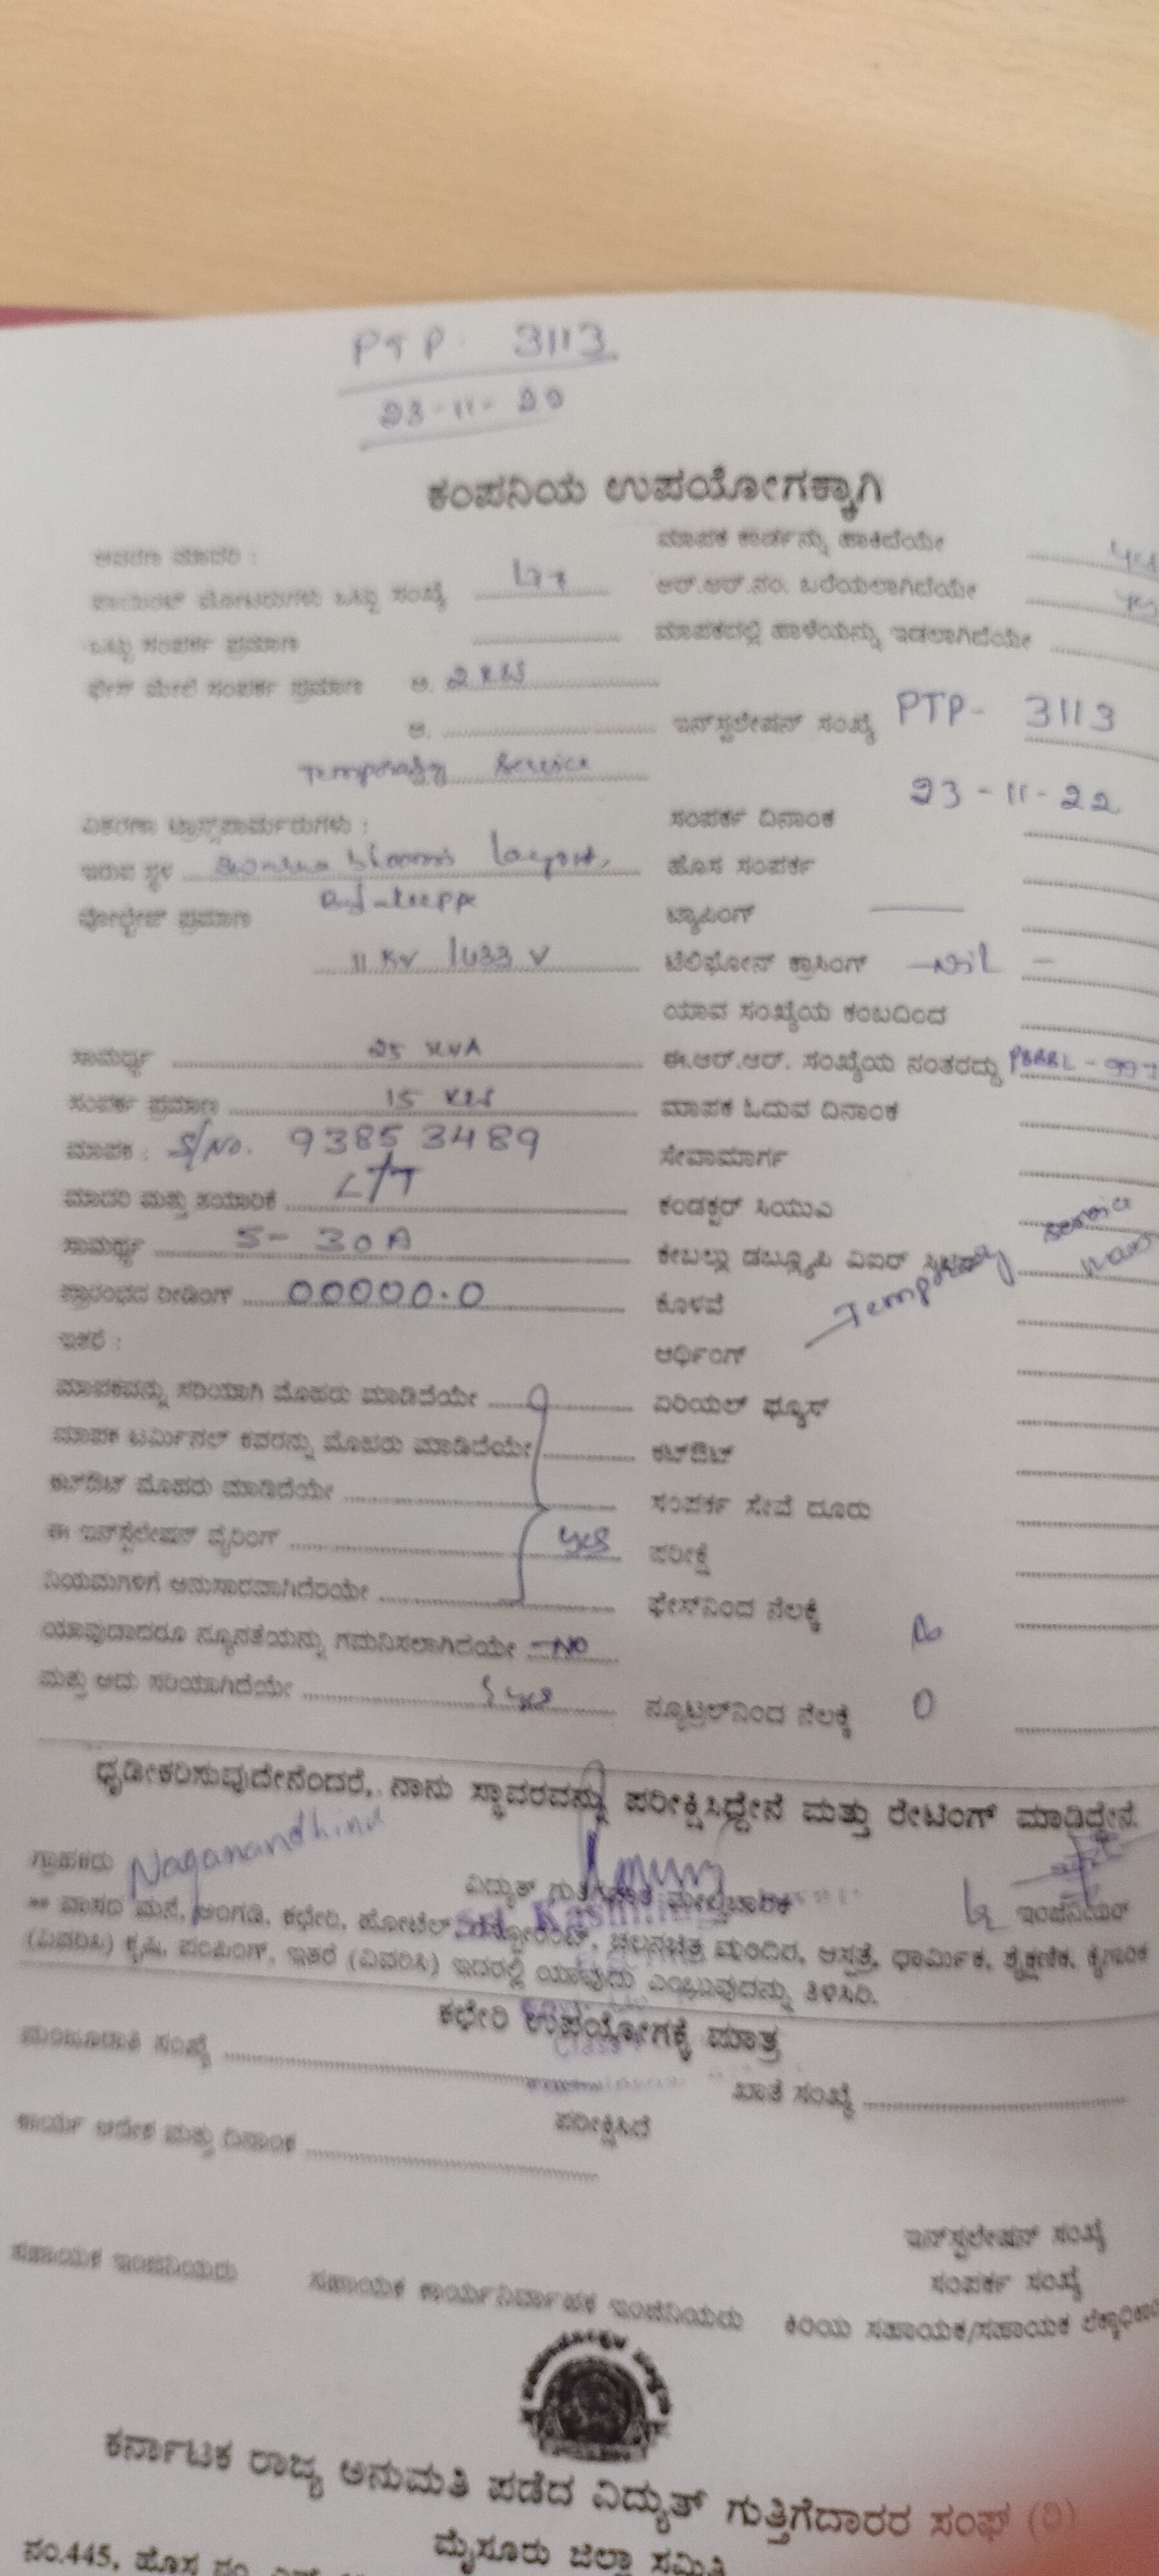 PTP 3113
23-11-22
ಕಂಪನಿಯ ಉಪಯೋಗಕ್ಕಾಗಿ
ಆವರಣ ಮಾದರಿ :
ಮಾಪಕ ಕಾರ್ಡನ್ನು ಹಾಕಿದೆಯೇ
ಪಾಯಿಂಟ್ ಮೋಟಾರುಗಳು ಒಟ್ಟು ಸಂಖ್ಯೆ
ಆರ್.ಆರ್.ನಂ. ಬರೆಯಲಾಗಿದೆಯೇ
ಒಟ್ಟು ಸಂಪರ್ಕ ಪ್ರಮಾಣ
ಮಾಪಕದಲ್ಲಿ ಹಾಳೆಯನ್ನು ಇಡಲಾಗಿದೆಯೇ
ಫೇಸ್ ಮೇಲೆ ಸಂಪರ್ಕ ಪ್ರಮಾಣ ಅ. 2 KW
ಆ.
ಇನ್‌ಸ್ಟಲೇಷನ್ ಸಂಖ್ಯೆ PTP- 3113
Temporary Service
23-11-22
ವಿತರಣಾ ಟ್ರಾನ್ಸ್‌ಫಾರ್ಮರುಗಳು :
ಸಂಪರ್ಕ ದಿನಾಂಕ
ಇರುವ ಸ್ಥಳ layout,
ಹೊಸ ಸಂಪರ್ಕ
ವೋಲ್ಟೇಜ್ ಪ್ರಮಾಣ
ಟ್ಯಾಪಿಂಗ್
11 KV /433 V
ಟೆಲಿಫೋನ್ ಕ್ರಾಸಿಂಗ್ -Nil -
ಯಾವ ಸಂಖ್ಯೆಯ ಕಂಬದಿಂದ
ಸಾಮರ್ಥ್ಯ 25 KVA
ಈ.ಆರ್.ಆರ್. ಸಂಖ್ಯೆಯ ನಂತರದ್ದು
ಸಂಪರ್ಕ ಪ್ರಮಾಣ 15 KW
ಮಾಪಕ ಓದುವ ದಿನಾಂಕ
ಮಾಪಕ : S/No. 93853489
ಸೇವಾಮಾರ್ಗ
ಮಾದರಿ ಮತ್ತು ತಯಾರಿಕೆ L/T
ಕಂಡಕ್ಟರ್ ಸಿಯುಎ
ಸಾಮರ್ಥ್ಯ 5-30A
ಕೇಬಲ್ಲು ಡಬ್ಲ್ಯೂಪಿ ವಿಐಆರ್
Temporary Service
ಪ್ರಾರಂಭದ ರೀಡಿಂಗ್ 00000.0
ಕೊಳವೆ
ಇತರೆ :
ಆರ್ಥಿಂಗ್
ಮಾಪಕವನ್ನು ಸರಿಯಾಗಿ ಮೊಹರು ಮಾಡಿದೆಯೇ
ಏರಿಯಲ್ ಫ್ಯೂಸ್
ಮಾಪಕ ಟರ್ಮಿನಲ್ ಕವರನ್ನು ಮೊಹರು ಮಾಡಿದೆಯೇ
ಕಟ್‌ಔಟ್
ಕಟ್‌ಔಟ್ ಮೊಹರು ಮಾಡಿದೆಯೇ
ಸಂಪರ್ಕ ಸೇವೆ ದೂರು
ಈ ಇನ್‌ಸ್ಟಲೇಷನ್ ವೈರಿಂಗ್ yes
ಪರೀಕ್ಷೆ
ನಿಯಮಗಳಿಗೆ ಅನುಸಾರವಾಗಿದೆಯೇ
ಫೇಸ್‌ನಿಂದ ನೆಲಕ್ಕೆ
ಯಾವುದಾದರೂ ನ್ಯೂನತೆಯನ್ನು ಗಮನಿಸಲಾಗಿದೆಯೇ -No
ಮತ್ತು ಅದು ಸರಿಯಾಗಿದೆಯೇ yes
ನ್ಯೂಟ್ರಲ್‌ನಿಂದ ನೆಲಕ್ಕೆ 0
ಧೃಡೀಕರಿಸುವುದೇನೆಂದರೆ, ನಾನು ಸ್ಥಾವರವನ್ನು ಪರೀಕ್ಷಿಸಿದ್ದೇನೆ ಮತ್ತು ರೇಟಿಂಗ್ ಮಾಡಿದ್ದೇನೆ.
ಗ್ರಾಹಕರು Naganandhini
ವಿದ್ಯುತ್ ಗುತ್ತಿಗೆದಾರ ಮೇಲ್ವಿಚಾರಕ
ಇಂಜಿನಿಯರ್
ವಾಸದ ಮನೆ, ಅಂಗಡಿ, ಕಛೇರಿ, ಹೋಟೆಲ್, ರೆಸ್ಟೋರೆಂಟ್, ಚಲನಚಿತ್ರ ಮಂದಿರ, ಆಸ್ಪತ್ರೆ, ಧಾರ್ಮಿಕ, ಶೈಕ್ಷಣಿಕ, ಕೈಗಾರಿಕ
(ವಿವರಿಸಿ) ಕೃಷಿ, ಪಂಪಿಂಗ್, ಇತರೆ (ವಿವರಿಸಿ) ಇದರಲ್ಲಿ ಯಾವುದು ಎಂಬುವುದನ್ನು ತಿಳಿಸಿರಿ.
ಕಛೇರಿ ಉಪಯೋಗಕ್ಕೆ ಮಾತ್ರ
ಮಂಜೂರಾತಿ ಸಂಖ್ಯೆ
ಖಾತೆ ಸಂಖ್ಯೆ
ಕಾರ್ಯ ಆದೇಶ ಮತ್ತು ದಿನಾಂಕ
ಪರೀಕ್ಷಿಸಿದೆ
ಇನ್‌ಸ್ಟಲೇಷನ್ ಸಂಖ್ಯೆ
ಸಂಪರ್ಕ ಸಂಖ್ಯೆ
ಸಹಾಯಕ ಇಂಜಿನಿಯರು
ಸಹಾಯಕ ಕಾರ್ಯನಿರ್ವಾಹಕ ಇಂಜಿನಿಯರು
ಕಿರಿಯ ಸಹಾಯಕ/ಸಹಾಯಕ
ಕರ್ನಾಟಕ ರಾಜ್ಯ ಅನುಮತಿ ಪಡೆದ ವಿದ್ಯುತ್ ಗುತ್ತಿಗೆದಾರರ ಸಂಘ (ರಿ)
ಮೈಸೂರು ಜಿಲ್ಲಾ ಸಮಿತಿ
ನಂ.445, ಹೊಸ ನಂ.